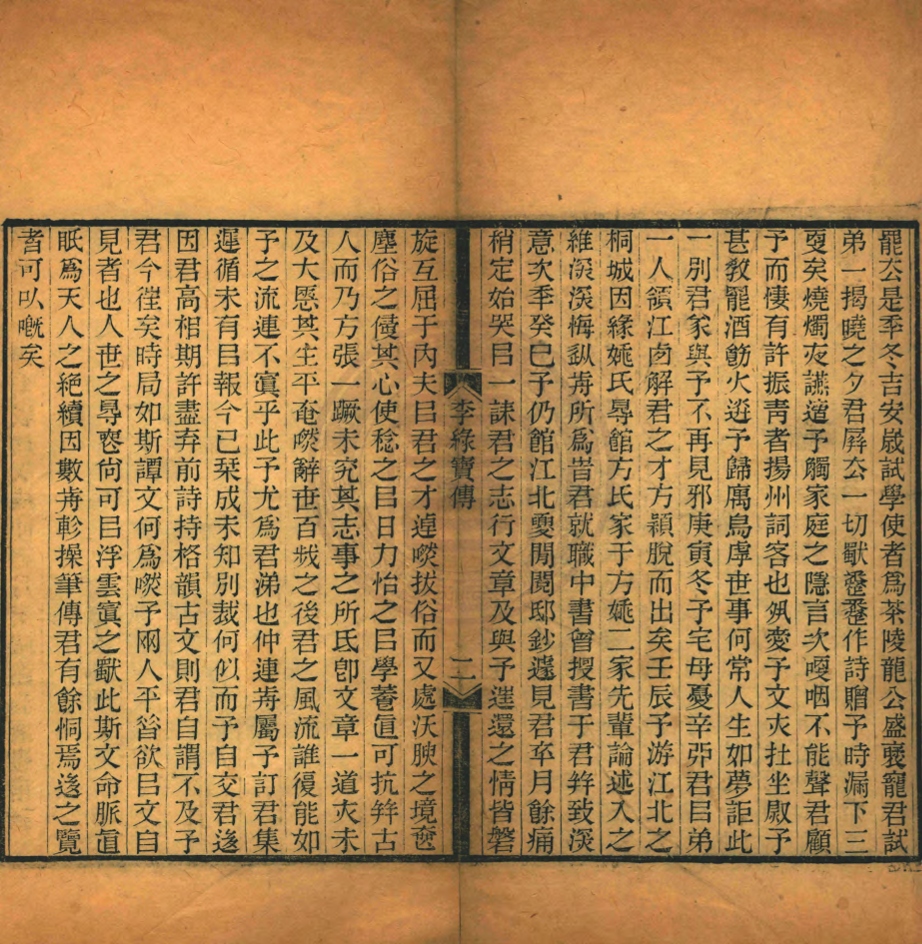 罷公是季冬吉安歲試學使者爲茶陵龍公盛襃寵君試
弟一揭曉之夕君屛厺一切獸蠶蠶作詩贈予時漏下三
叓矣燒燭夜讌遒予觸家庭之隱言次哽咽不能聲君顧
予而悽有許振靑者揚州詞客也夙愛予文夾拄坐慰予
甚敎罷酒勮火逬予歸寓烏虖世事何常人生如夢詎此
一別君家與予不再見邪庚寅冬予宅母憂辛丣君㠯弟
一人領江㐭解君之才方穎脫而出矣壬辰予游江北之
桐城因緣姚氏㝵館方氏家于方姚二家先輩論述入之
維深深悔䚶歬所爲昔君就職中書曾挍書于君幷致深
意次季癸巳予仍館江北夓閒閱邸鈔遽見君卒月餘痛
稍定始哭㠯一誄君之志行文章及與予逬還之情皆磐
李綠寶傳
二
旋互屈于內夫㠯君之才逴㬗拔俗而又處沃腴之境奩
塵俗之㒓其心使稔之㠯日力怡之㠯學菴値可抗幷古
人而乃方張一蹶未究其志事之所氐卽文章一道夾未
及大慝其生平奄㬗辭世百㘽之後君之風流誰復能如
予之流連不寘乎此予尤爲君涕也仲連歬屬予訂君集
遲循未有㠯報今已栞成未知別裁何似而予自交君逘
因君高相期許盡弃前詩持格韻古文則君自謂不及予
君今徃矣時局如斯譚文何爲㬗予兩人平㫺欲㠯文自
見者也人世之㝵䘮尙可㠯浮雲寘之獸此斯文命脈値
眂爲天人之絕續因數歬軫操筆傳君有餘恫焉逘之覽
者可㕥嘅矣